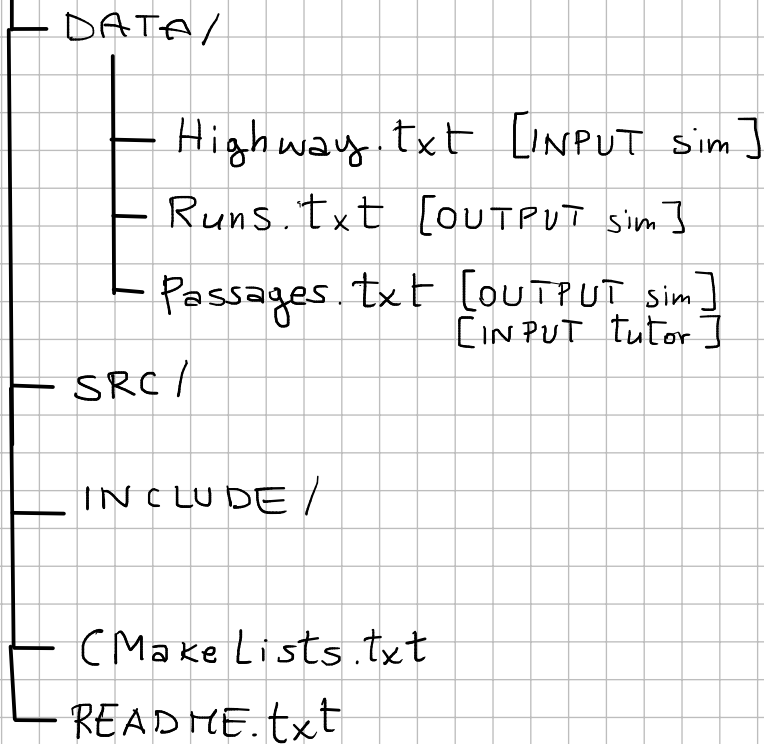 DATA/
Highway.txt [INPUT sim]
Runs.txt [OUTPUT sim]
Passages.txt [OUTPUT sim]
[INPUT tutor]
SRC/
INCLUDE/
CMakeLists.txt
README.txt